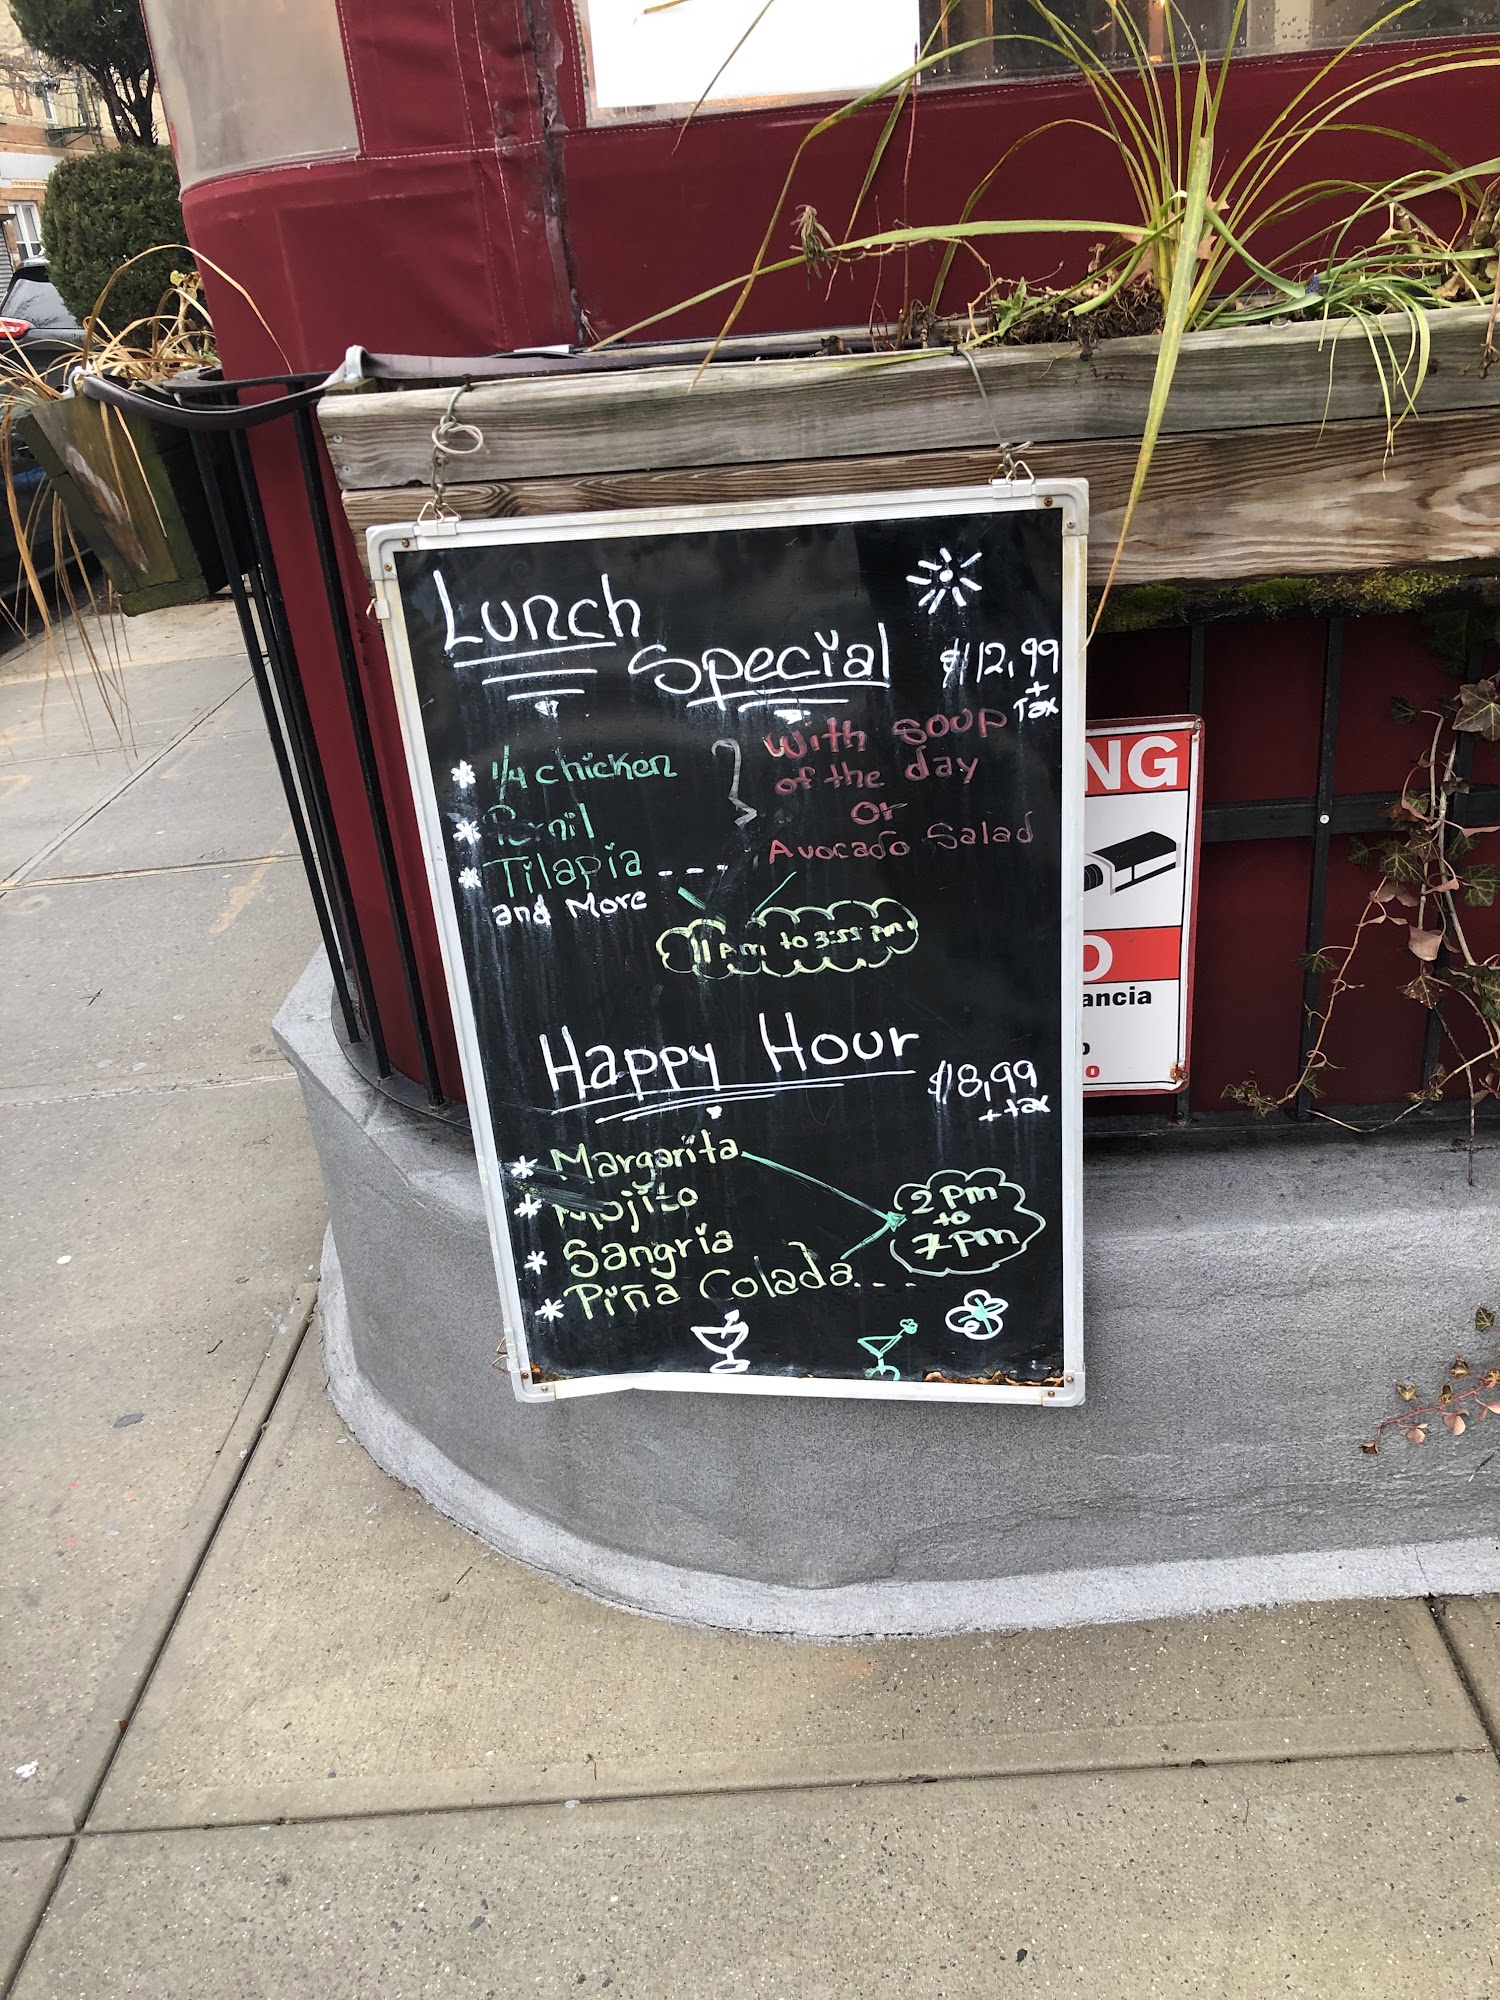 Lunch
Special
$12,99
+
Tax
* 1/4 chicken
* Pernil
* Tilapia - - -
and More
With soup
of the day
or
Avocado Salad
11 Am to 3:55 pm
Happy Hour
$18,99
+ tax
* Margarita
* Mojito
* Sangria
* Piña Colada. . . .
2 pm
to
7 pm
NG
O
ancia
o
o